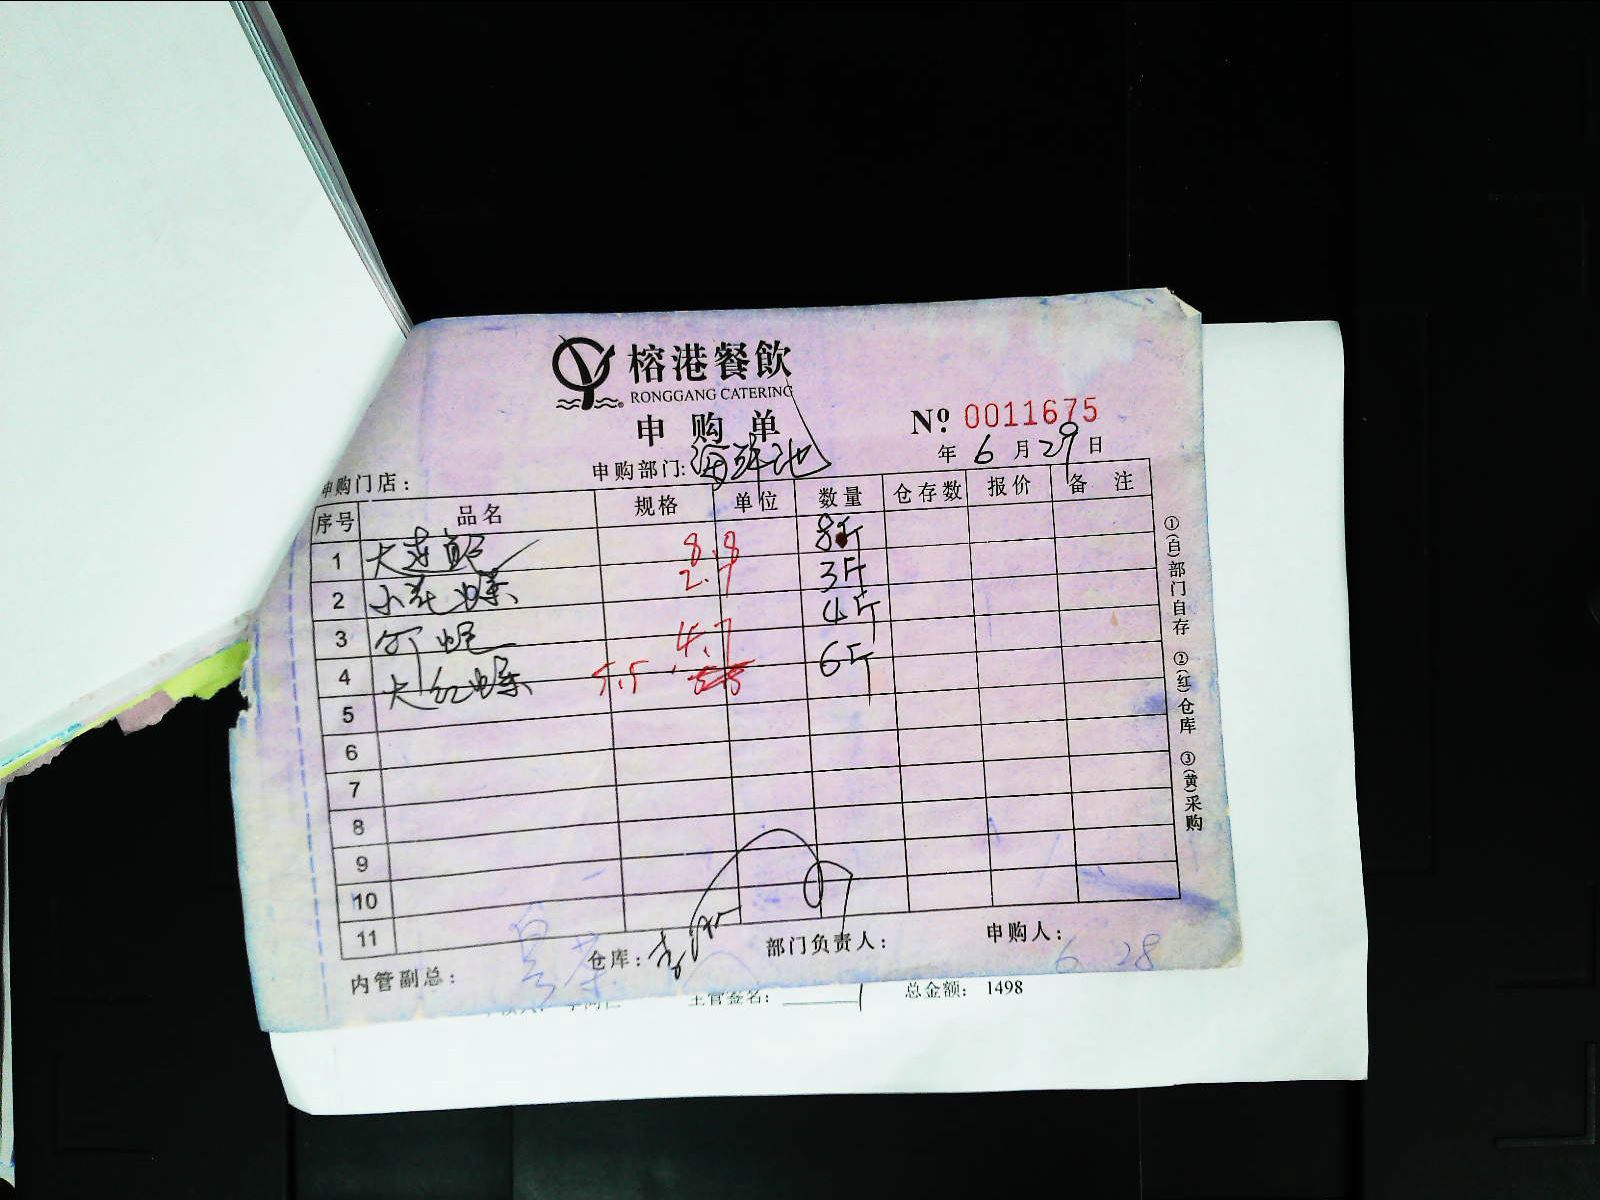 榕港餐飲
RONGGANG CATERING
申购单
Nº 0011675
申购门店：
申购部门: 海鲜池
年 6 月 29 日
序号 品名 规格 单位 数量 仓存数 报价 备注
1 大连鲍 8.8 8斤
2 小花螺 2.7 3斤
3 4.7 4斤
4 大红螺 5.5 6斤
5
6
7
8
9
10
11
内管副总：
仓库：
部门负责人：
申购人：
6 28
①(白)部门自存 ②(红)仓库 ③(黄)采购
主管签名：
总金额： 1498